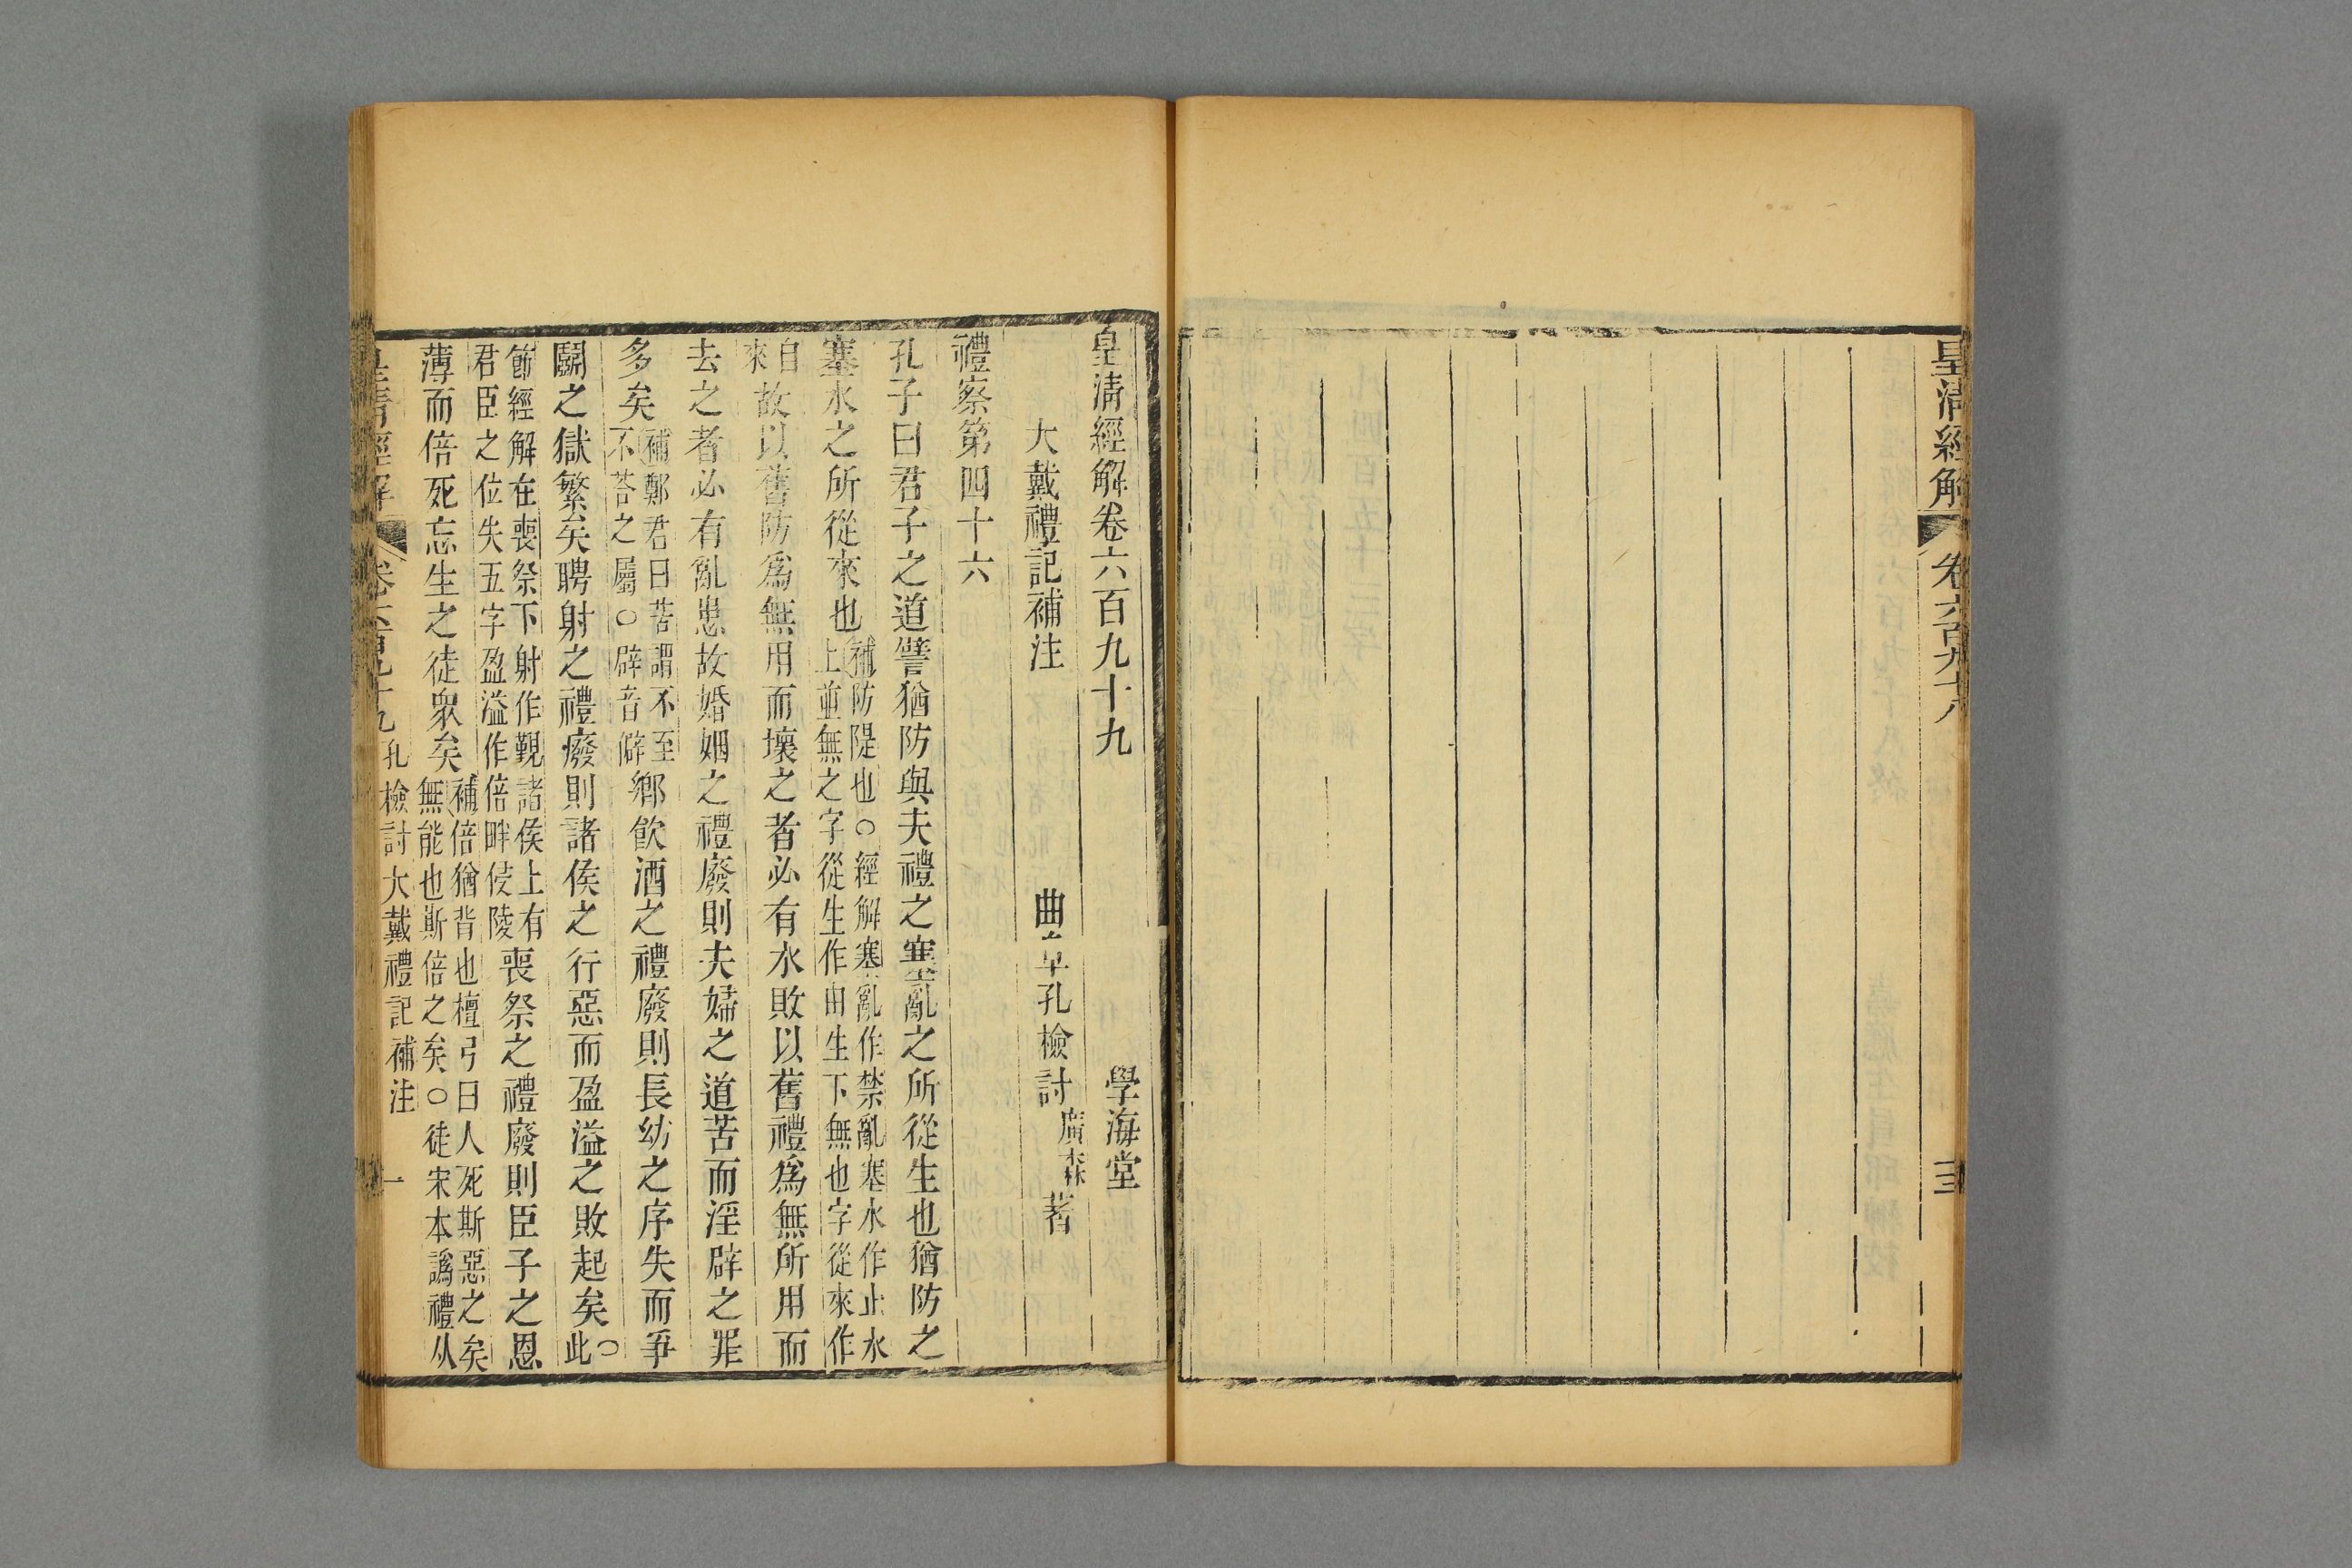 皇清經解 卷六百九十八 三
皇清經解卷六百九十九 學海堂
大戴禮記補注 曲阜孔檢討廣森著
禮察第四十六
孔子曰君子之道譬猶防與夫禮之塞亂之所從生也猶防之
塞水之所從來也補防隄也○經解塞亂作禁亂塞水作止水
上並無之字從生作由生下無也字從來作
自
來故以舊防爲無用而壞之者必有水敗以舊禮爲無所用而
去之者必有亂患故婚姻之禮廢則夫婦之道苦而淫辟之罪
多矣補鄭君曰苦謂不至
不荅之屬○辟音僻鄉飲酒之禮廢則長幼之序失而爭
鬭之獄繁矣聘射之禮廢則諸侯之行惡而盈溢之敗起矣○
此
節經解在喪祭下射作覲諸侯上有
君臣之位失五字盈溢作倍畔侵陵喪祭之禮廢則臣子之恩
薄而倍死忘生之徒衆矣補倍猶背也檀弓曰人死斯惡之矣
無能也斯倍之矣○徒宋本譌禮从
皇清經解 卷六百九十九 孔檢討大戴禮記補注 一